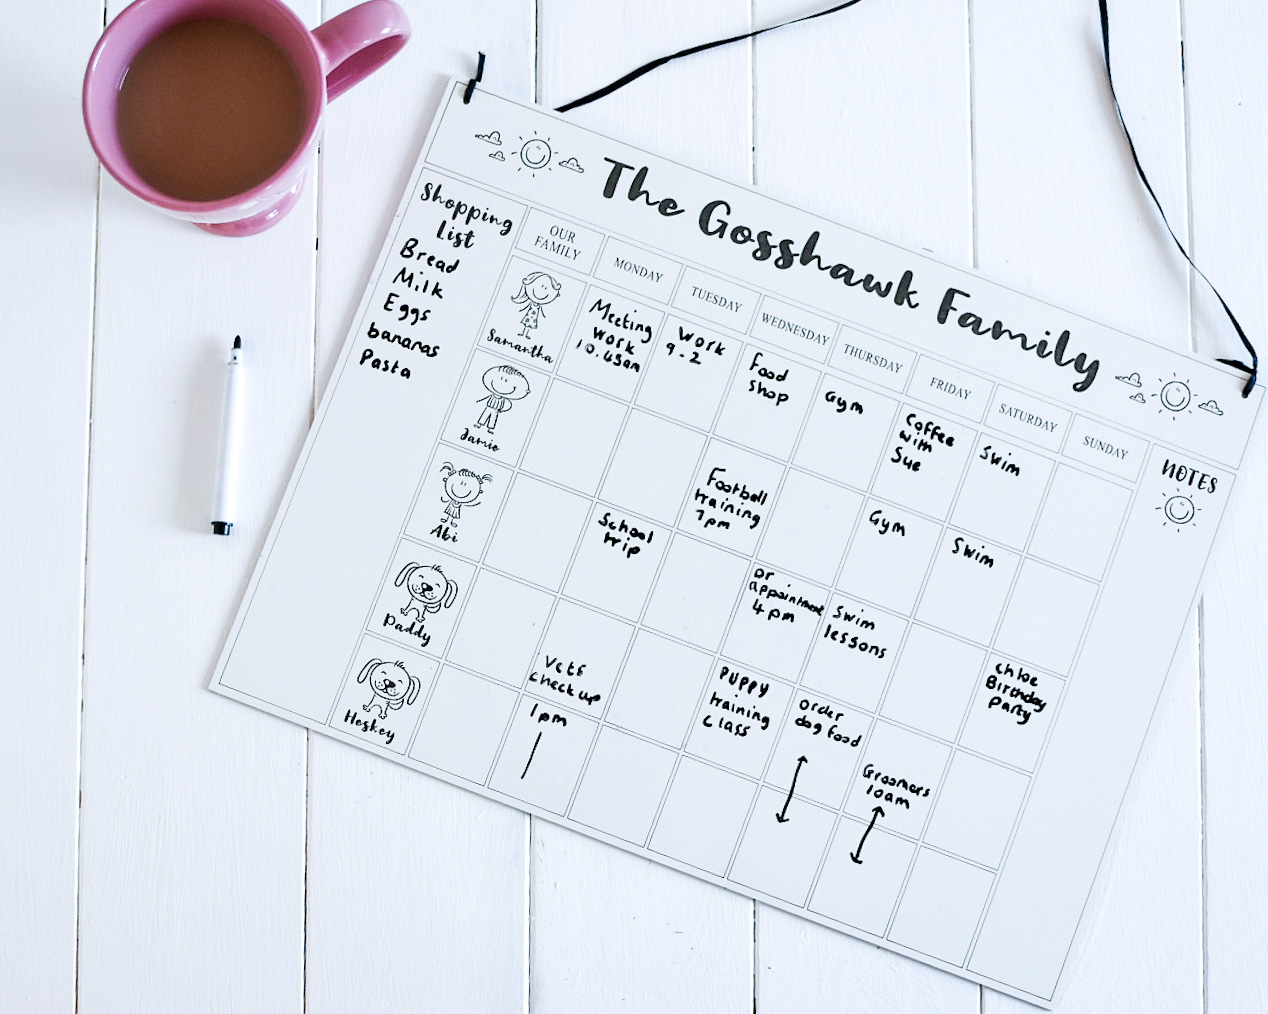 The Gosshawk Family
Shopping
List
Bread
Milk
Eggs
bananas
Pasta
OUR
FAMILY
MONDAY
TUESDAY
WEDNESDAY
THURSDAY
FRIDAY
SATURDAY
SUNDAY
NOTES
Samantha
Meeting
work
10.45am
Work
9-2
Food
shop
Gym
Coffee
with
Sue
Swim
Jamie
Football
training
7pm
Gym
Swim
Abi
School
trip
Dr
appointment
4pm
Swim
lessons
Chloe
Birthday
Party
Paddy
Vets
check up
1pm
Puppy
training
class
order
dog food
Groomers
10am
Heskey